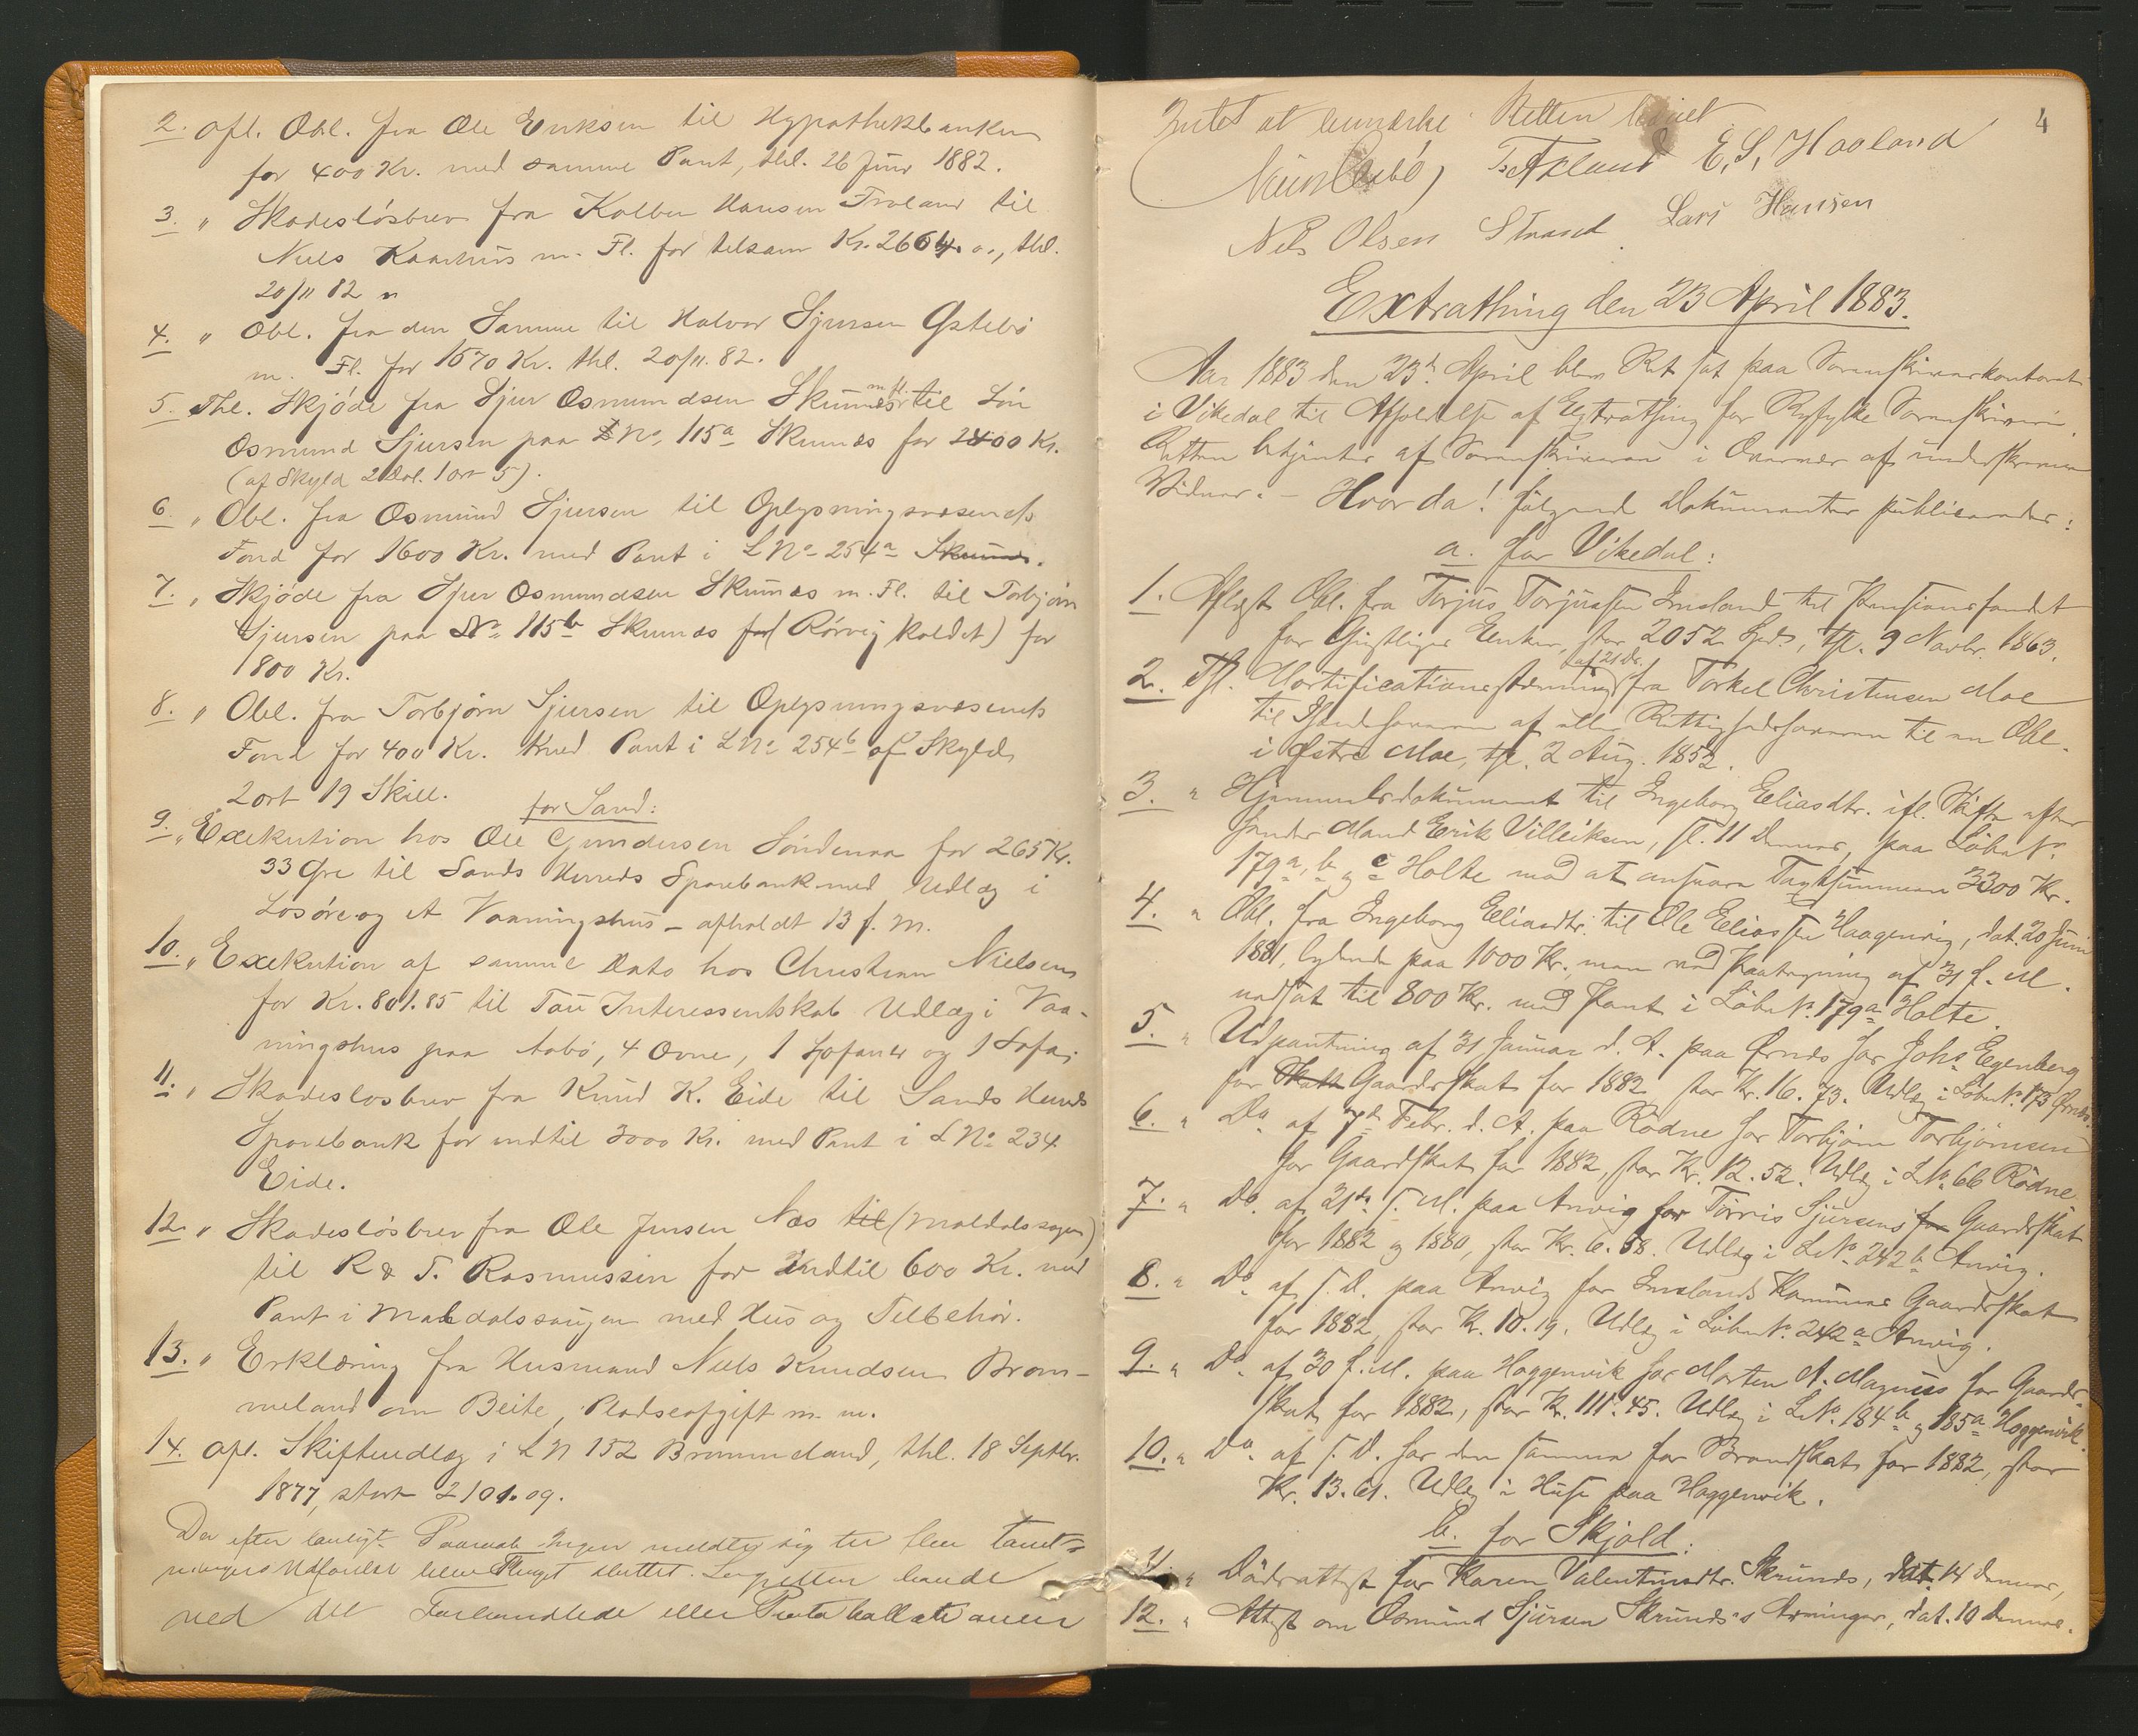 2. Afl. Obl. fra Ole Eriksen til Hypothekbanken
for 400 Kr. med samme Pant, thl. 26 Juni 1882.
3. " Skadesløsbrev fra Kolben Hansen Froland til
Niels Kaarhus m. Fl. for tilsam Kr. 2664. o., thl.
20/11 82
4. " Obl. fra den Samme til Halvor Sjursen Østebø
m. Fl. for 1570 Kr. thl. 20/11. 82.
5. Thl. Skjøde fra Sjur Osmundsen Skunæs m fl. til Søn
Osmund Sjursen paa LNo. 115a Skunæs for 2400 Kr.
(af Skyld 2 Dal. 1 ort 5).
6. " Obl. fra Osmund Sjursen til Oplysningsvæsenets
Fond for 1600 Kr. med Pant i LNo 254a Skunæs.
7. " Skjøde fra Sjur Osmundsen Skunæs m. Fl. til Torbjørn
Sjursen paa No 115b Skunæs (Rørvig kaldet) for
1800 Kr.
8. " Obl. fra Torbjørn Sjursen til Oplysningsvæsenets
Fond for 400 Kr. med Pant i LNo 254b af Skyld
2 ort 19 Skill.
for Sand:
9. " Exekution hos Ole Gundersen Søndenaa for 265 Kr.
33 Øre til Sands Herreds Sparebank med Udlæg i
Løsøre og et Vaaningshus - afholdt 13 f. M.
10. " Exekution af samme Dato hos Christian Nielsen
for Kr. 801.85 til Tau Interessentskab Udlæg i Vaa-
ningshus paa Aabø, 4 Ovne, 1 og 1 Sofa;
11. " Skadesløsbrev fra Knud K. Eide til Sands Herreds
Sparebank for indtil 3000 Kr. med Pant i LNo 234
Eide.
12. " Skadesløsbrev fra Ole Jensen Næs til (Maldalssagen)
til R & T. Rasmussen for indtil 600 Kr. med
Pant i Maldalssaugen med Hus og Tilbehør.
13. " Erklæring fra Husmand Niels Knudsen Brom-
meland om Beite, Pladseafgift m. m.
14. Afl. Skifteudlæg i LN 152 Brommeland, thl. 18 Septbr.
1877, stort 2101.09.
Da efter lovligt Paaraab Ingen meldte sig til flere
Udførelse blev Thinget sluttet.
ved det Forhandlede eller
4
Intet at bemærke. Retten hævet
T. Axland E. S. Haaland
Nels Olsen Strand. Lars Hansen
Extrathing den 23 April 1883.
Aar 1883 den 23de April blev Ret sat paa Sorenskriverkontoret
i Vikedal til Afholdelse af Extrathing for Ryfylke Sorenskriveri.
Retten betjentes af Sorenskriveren i Overvær af underskrevne
Vidner. - Hvorda! følgende Dokumenter publicerades:
a. for Vikedal:
1. Aflæst Obl. fra Torjus Torjussen Imsland til Pensionsfondet
for Geistlige Enker, stor 2052 Spd., thl. 9 Novbr. 1863.
2. Thl. Mortificationsstævning fra Torkel Christensen Moe
til Ihændehaveren af eller Rettighedshaveren til en Obl.
i Østre Moe, thl. 2 Aug. 1852.
3. " Hjemmelsdokument til Ingeborg Eliasdtr. ifl. Skifte efter
hendes Mand Eerik Villeiksen, sl. 11 Dennes, paa LøbeNo
179a, b og c Holte mod at ansvare Taxtsummen 3300 Kr.
4. " Obl. fra Ingeborg Eliasdtr. til Ole Eliassen Haagenvig, dat. 20 Juni
1881, lydende paa 1000 Kr., men ved Paategning af 31 f. M.
nedsat til 800 Kr. med Pant i LøbeNo. 179a Holte.
5. " Udpantning af 31 Januar d. A. paa Ørnes hos Johs Egenberg
for Skatt Gaardsskat for 1882, stor Kr. 16.73. Udlæg i LøbeNo. 173 Ørnes.
6. " Do. af 7de Febr. d. A. paa Rødne hos Torbjørn Torbjørnsen
for Gaardskat for 1882, stor Kr. 12.52. Udlæg i LNo. 66 Rødne
7. " Do. af 21de s. M. paa Anvig hos Torris Sjursens for Gaardsskat
for 1882 og 1880, stor Kr. 6.58. Udlæg i LNo. 242b Anvig.
8. " Do. af s. D. paa Anvig for Imslands Kommunes Gaardsskat
for 1882, stor Kr. 10.19. Udlæg i LøbeNo. 242a Anvig.
9. " Do. af 30 f. M. paa Haggenvik hos Morten A. Magnus for Gaards-
skat for 1882, stor Kr. 111.45. Udlæg i LNo. 184b og 185a Haggenvik.
10. " Do. af s. D. hos den samme for Brandskat for 1882, stor
Kr. 13.61. Udlæg i Huse paa Haggenvik.
b. for Skjold:
11. " Dødsattest for Karen Valentinsdtr. Skrunds, dat. 14 dennes,
12. " Attest om Osmund Sjursen Skrunds's Arvinger, dat. 10 dennes.